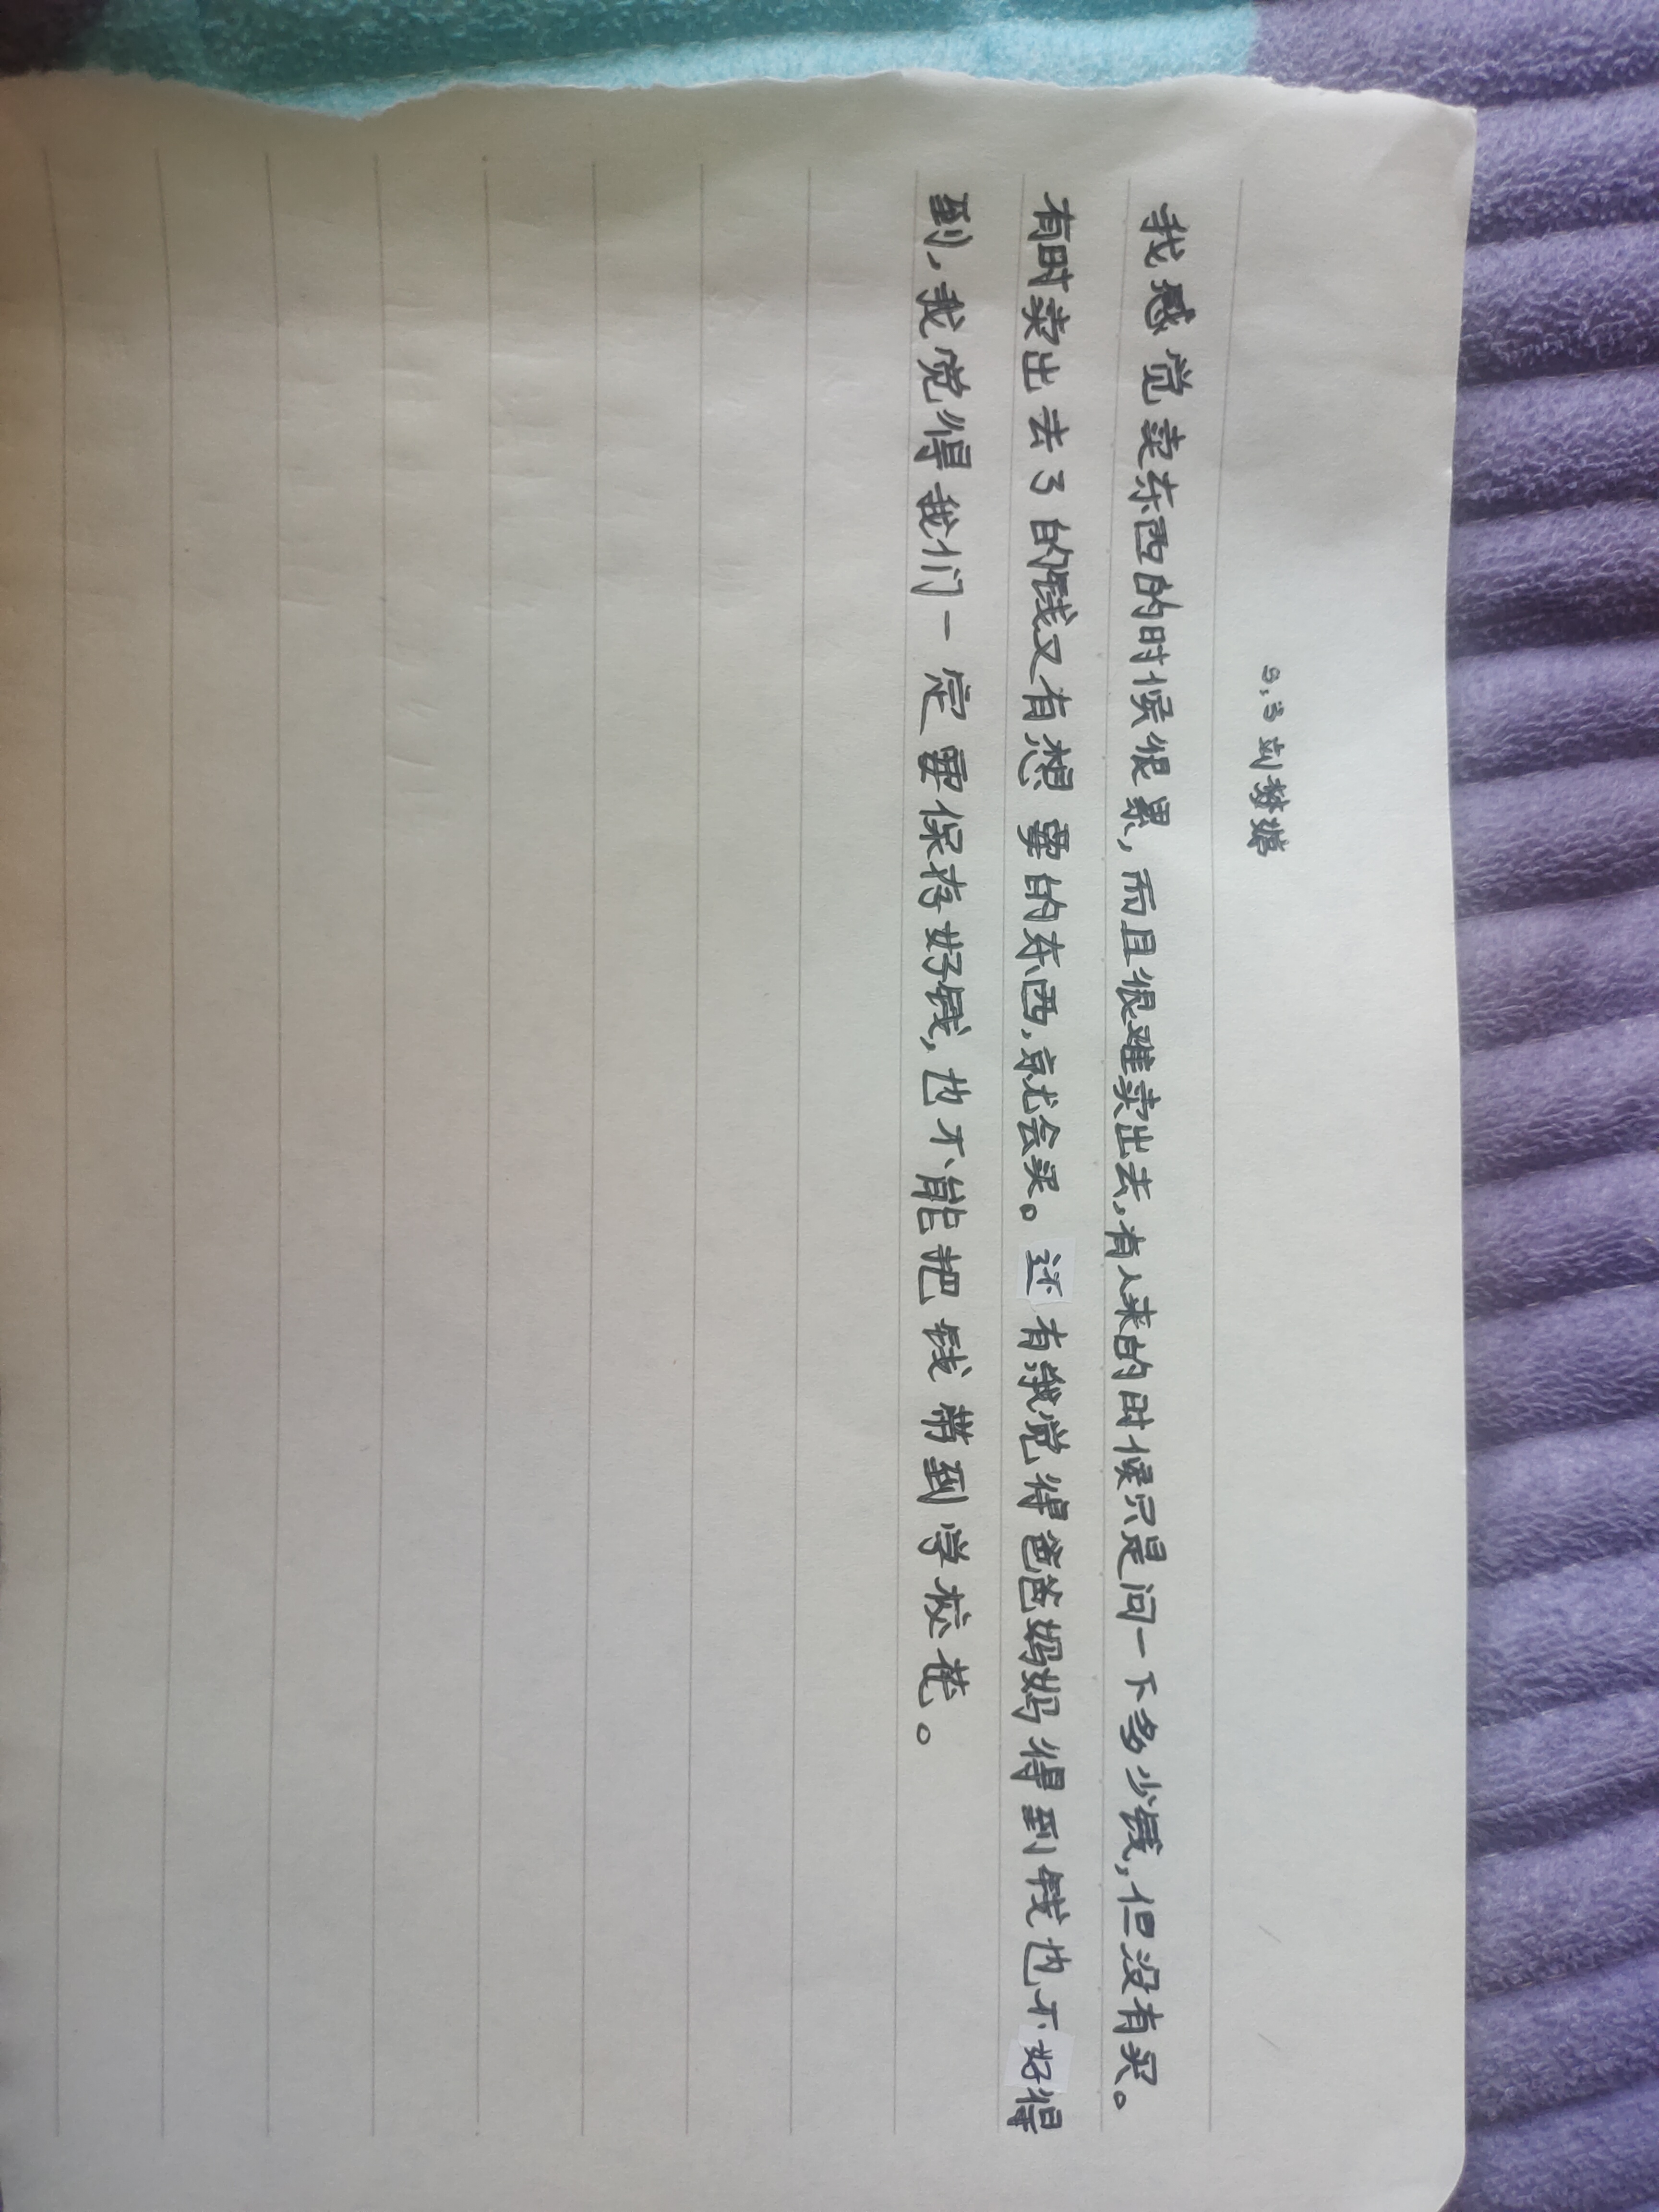 5.3 刘梦婷
我感觉卖东西的时候很累，而且很难卖出去，有人来的时候只是问一下多少钱，但没有买。
有时卖出去了的钱又有想要的东西，就会买。还有，我觉得爸爸妈妈得到钱也不好得
到，我觉得我们一定要保存好钱，也不能把钱带到学校花。